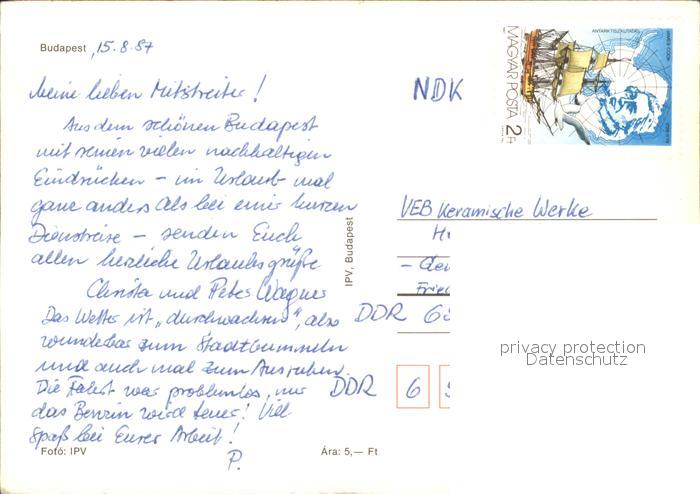 Budapest, 15.8.87
Meine lieben Mitstreiter!
Aus dem schönen Budapest
mit seinen vielen nachhaltigen
Eindrücken – im Urlaub mal
ganz anders als bei einer kurzen
Dienstreise – senden Euch
allen herzliche Urlaubsgrüße
Christa und Peter Wagner
Das Wetter ist „durchwachsen", also
wunderbar zum Stadtbummeln
und auch mal zum Ausruhen.
Die Fahrt war problemlos, nur
das Benzin wird teuer! Viel
Spaß bei Eurer Arbeit!
P.
Fotó: IPV
Ára: 5,— Ft
IPV, Budapest
MAGYAR POSTA
2 Ft
ANTARKTISZKUTATÁS
JAMES COOK
NDK
VEB Keramische Werke
DDR 65
DDR 6 5
privacy protection
Datenschutz